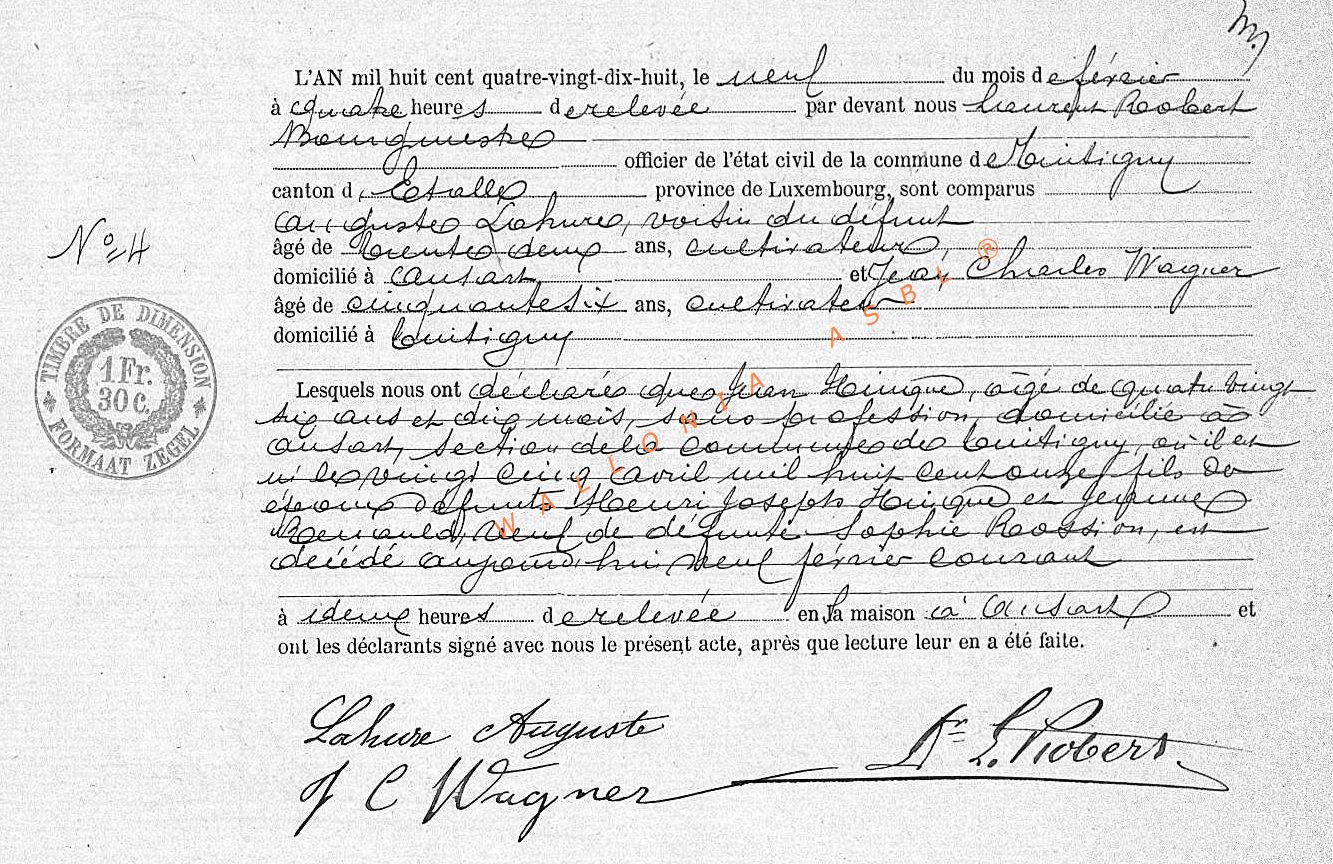 L'AN mil huit cent quatre-vingt-dix-huit, le neuf du mois de février
à quatre heures de relevée par devant nous Laurent Robert
Bourgmestre
officier de l'état civil de la commune de Tintigny
canton d'Etalle province de Luxembourg, sont comparus
Auguste Lahure, voisin du défunt
âgé de trente deux ans, cultivateur,
domicilié à Ansart et Jean Charles Wagner
âgé de cinquante six ans, cultivateur
domicilié à Tintigny
Lesquels nous ont déclaré que Jean Hinque, âgé de quatre vingt
six ans et dix mois, sans profession, domicilié à
Ansart, section de la commune de Tintigny, où il est
né le vingt cinq avril mil huit cent onze, fils de
époux défunts Henri Joseph Hinque et Jeanne
Renauld, veuf de défunte Sophie Rossion, est
décédé aujourd'hui neuf février courant
à deux heures de relevée en la maison à Ansart et
ont les déclarants signé avec nous le présent acte, après que lecture leur en a été faite.
N° 4
TIMBRE DE DIMENSION
1 Fr.
30 C.
FORMAAT ZEGEL
WALLONIA ASBL ®
Lahure Auguste
J C Wagner
Dr L. Robert